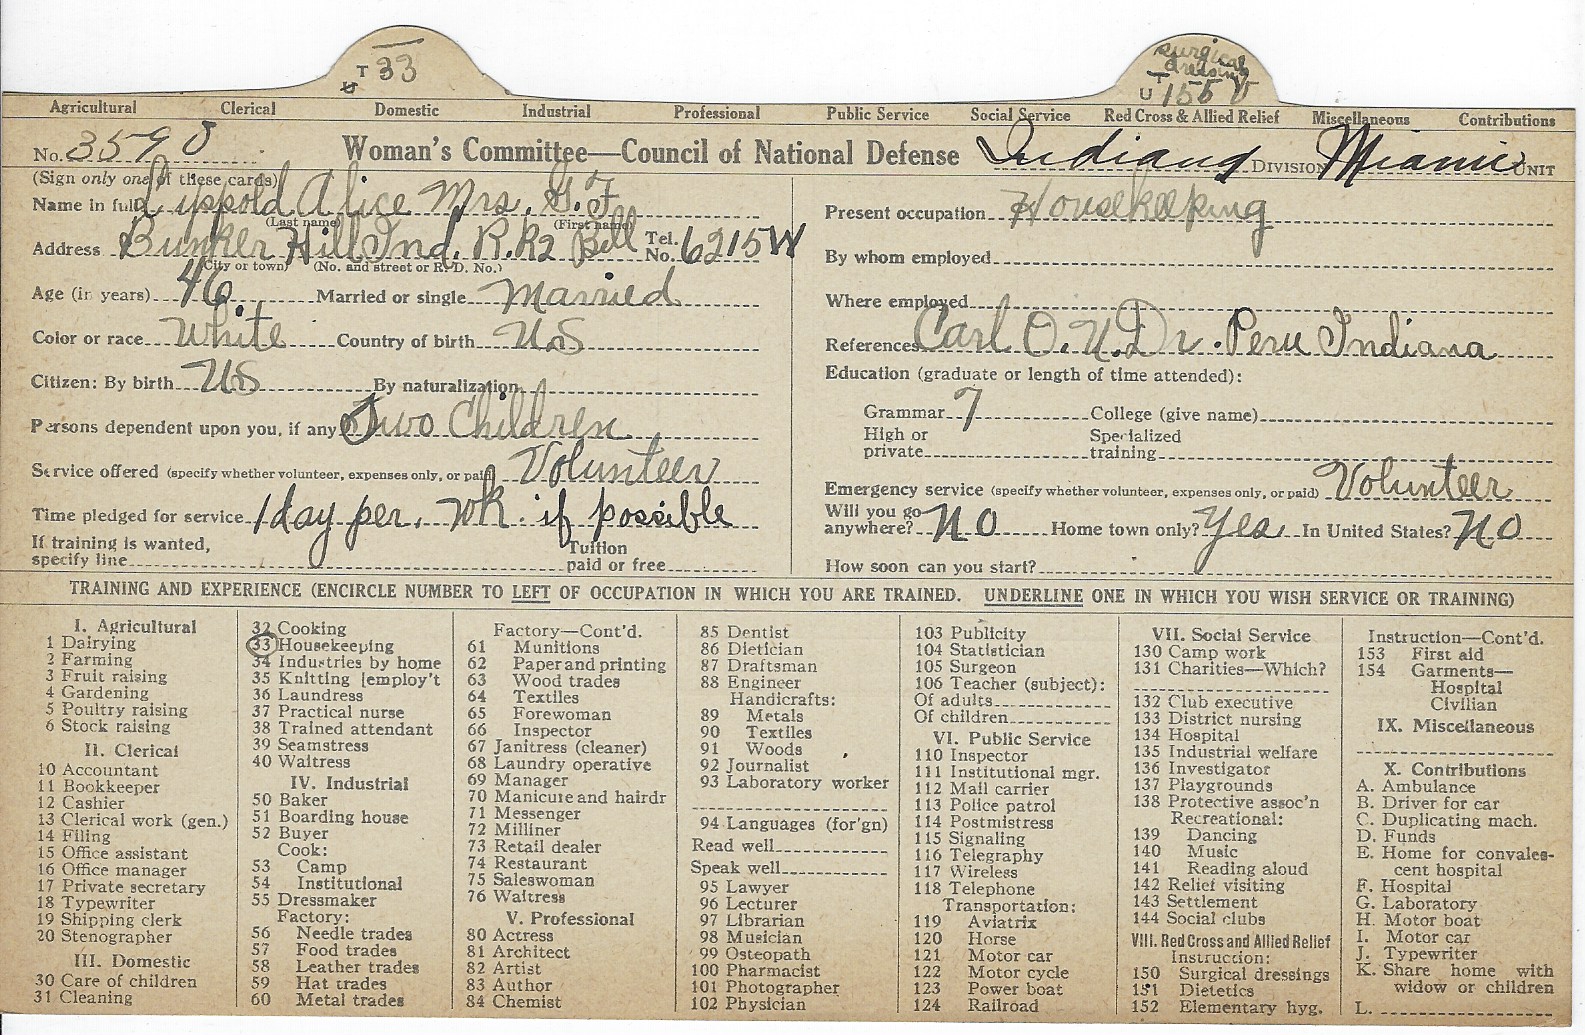 T 33
U
surgical
dressing
T
U 155 V
Agricultural Clerical Domestic Industrial Professional Public Service Social Service Red Cross & Allied Relief Miscellaneous Contributions
No. 3590 Woman's Committee—Council of National Defense Indiana DIVISION Miami UNIT
(Sign only one of these cards)
Name in full Lyppold Alice Mrs. G. F.
(Last name) (First name)
Address Bunker Hill Ind. R.R2 Bell Tel. No. 6215W
(City or town) (No. and street or R. D. No.)
Age (in years) 46 Married or single Married
Color or race White Country of birth US
Citizen: By birth US By naturalization
Persons dependent upon you, if any Two Children
Service offered (specify whether volunteer, expenses only, or paid) Volunteer
Time pledged for service 1 day per. wk. if possible
If training is wanted,
specify line Tuition paid or free
Present occupation Housekeeping
By whom employed
Where employed
References Carl O. U. Dr. Peru Indiana
Education (graduate or length of time attended):
Grammar 7 College (give name)
High or private Specialized training
Emergency service (specify whether volunteer, expenses only, or paid) Volunteer
Will you go
anywhere? NO Home town only? Yes In United States? NO
How soon can you start?
TRAINING AND EXPERIENCE (ENCIRCLE NUMBER TO LEFT OF OCCUPATION IN WHICH YOU ARE TRAINED. UNDERLINE ONE IN WHICH YOU WISH SERVICE OR TRAINING)
I. Agricultural
1 Dairying
2 Farming
3 Fruit raising
4 Gardening
5 Poultry raising
6 Stock raising
II. Clerical
10 Accountant
11 Bookkeeper
12 Cashier
13 Clerical work (gen.)
14 Filing
15 Office assistant
16 Office manager
17 Private secretary
18 Typewriter
19 Shipping clerk
20 Stenographer
III. Domestic
30 Care of children
31 Cleaning
32 Cooking
33 Housekeeping
34 Industries by home
35 Knitting [employ't
36 Laundress
37 Practical nurse
38 Trained attendant
39 Seamstress
40 Waitress
IV. Industrial
50 Baker
51 Boarding house
52 Buyer
Cook:
53 Camp
54 Institutional
55 Dressmaker
Factory:
56 Needle trades
57 Food trades
58 Leather trades
59 Hat trades
60 Metal trades
Factory—Cont'd.
61 Munitions
62 Paper and printing
63 Wood trades
64 Textiles
65 Forewoman
66 Inspector
67 Janitress (cleaner)
68 Laundry operative
69 Manager
70 Manicure and hairdr
71 Messenger
72 Milliner
73 Retail dealer
74 Restaurant
75 Saleswoman
76 Waitress
V. Professional
80 Actress
81 Architect
82 Artist
83 Author
84 Chemist
85 Dentist
86 Dietician
87 Draftsman
88 Engineer
Handicrafts:
89 Metals
90 Textiles
91 Woods
92 Journalist
93 Laboratory worker
94 Languages (for'gn)
Read well
Speak well
95 Lawyer
96 Lecturer
97 Librarian
98 Musician
99 Osteopath
100 Pharmacist
101 Photographer
102 Physician
103 Publicity
104 Statistician
105 Surgeon
106 Teacher (subject):
Of adults
Of children
VI. Public Service
110 Inspector
111 Institutional mgr.
112 Mail carrier
113 Police patrol
114 Postmistress
115 Signaling
116 Telegraphy
117 Wireless
118 Telephone
Transportation:
119 Aviatrix
120 Horse
121 Motor car
122 Motor cycle
123 Power boat
124 Railroad
VII. Social Service
130 Camp work
131 Charities—Which?
132 Club executive
133 District nursing
134 Hospital
135 Industrial welfare
136 Investigator
137 Playgrounds
138 Protective assoc'n
Recreational:
139 Dancing
140 Music
141 Reading aloud
142 Relief visiting
143 Settlement
144 Social clubs
VIII. Red Cross and Allied Relief
Instruction:
150 Surgical dressings
151 Dietetics
152 Elementary hyg.
Instruction—Cont'd.
153 First aid
154 Garments—
Hospital
Civilian
IX. Miscellaneous
X. Contributions
A. Ambulance
B. Driver for car
C. Duplicating mach.
D. Funds
E. Home for convales-
cent hospital
F. Hospital
G. Laboratory
H. Motor boat
I. Motor car
J. Typewriter
K. Share home with
widow or children
L.